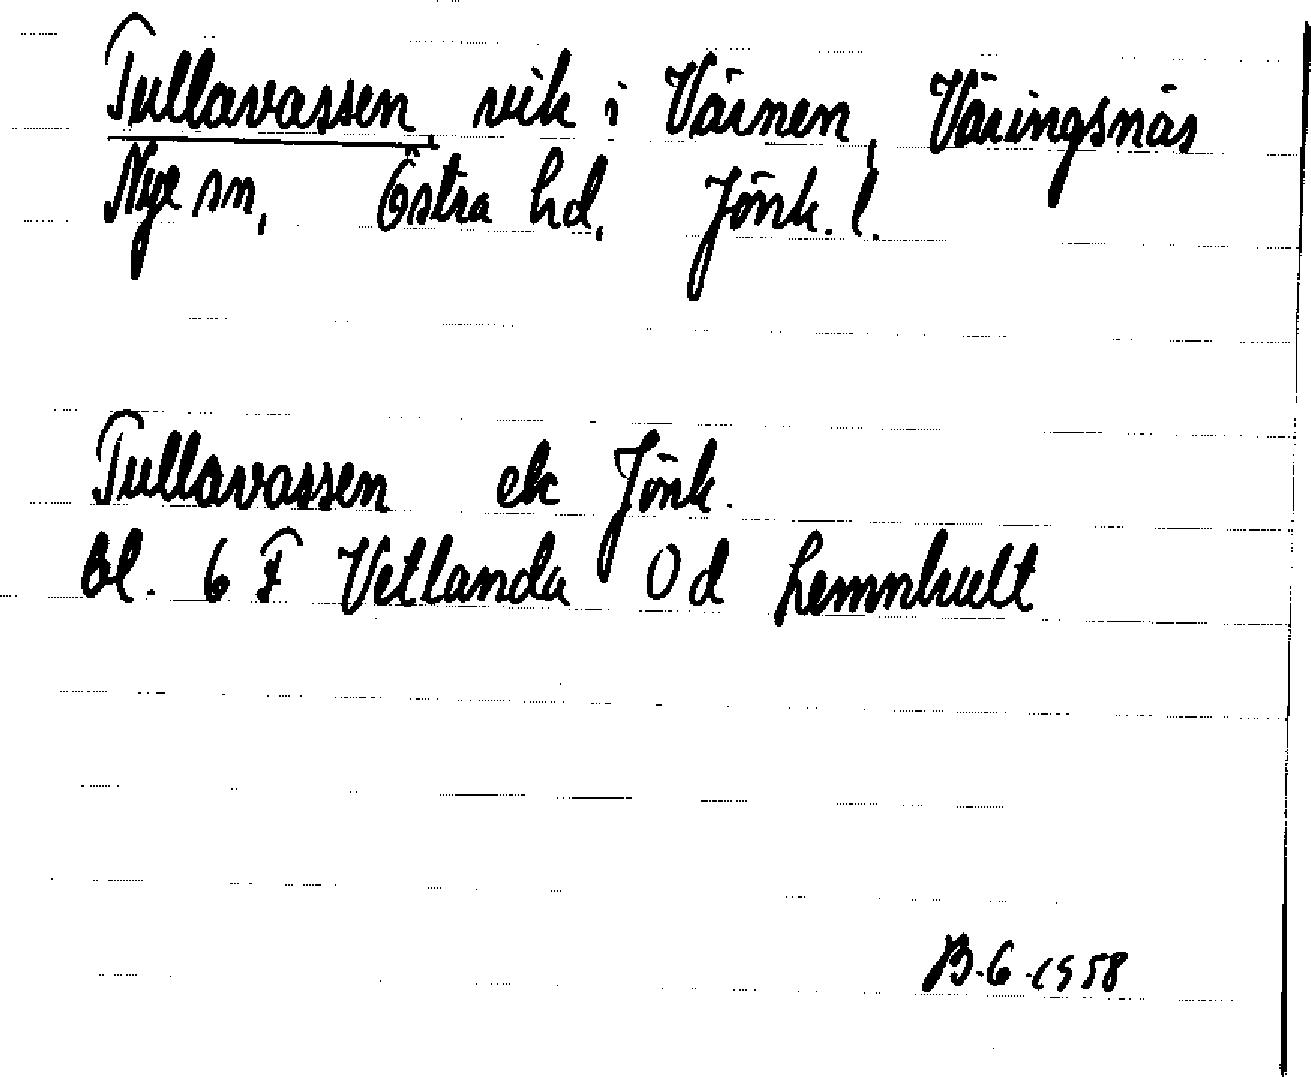 Tullavassen, vik i Värnen, Väringsnäs
Nye sn, Östra hd, Jönk. l.
Tullavassen ek Jönk.
Bl. 6 F Vetlanda 0 d Lemnhult
B-6-1958